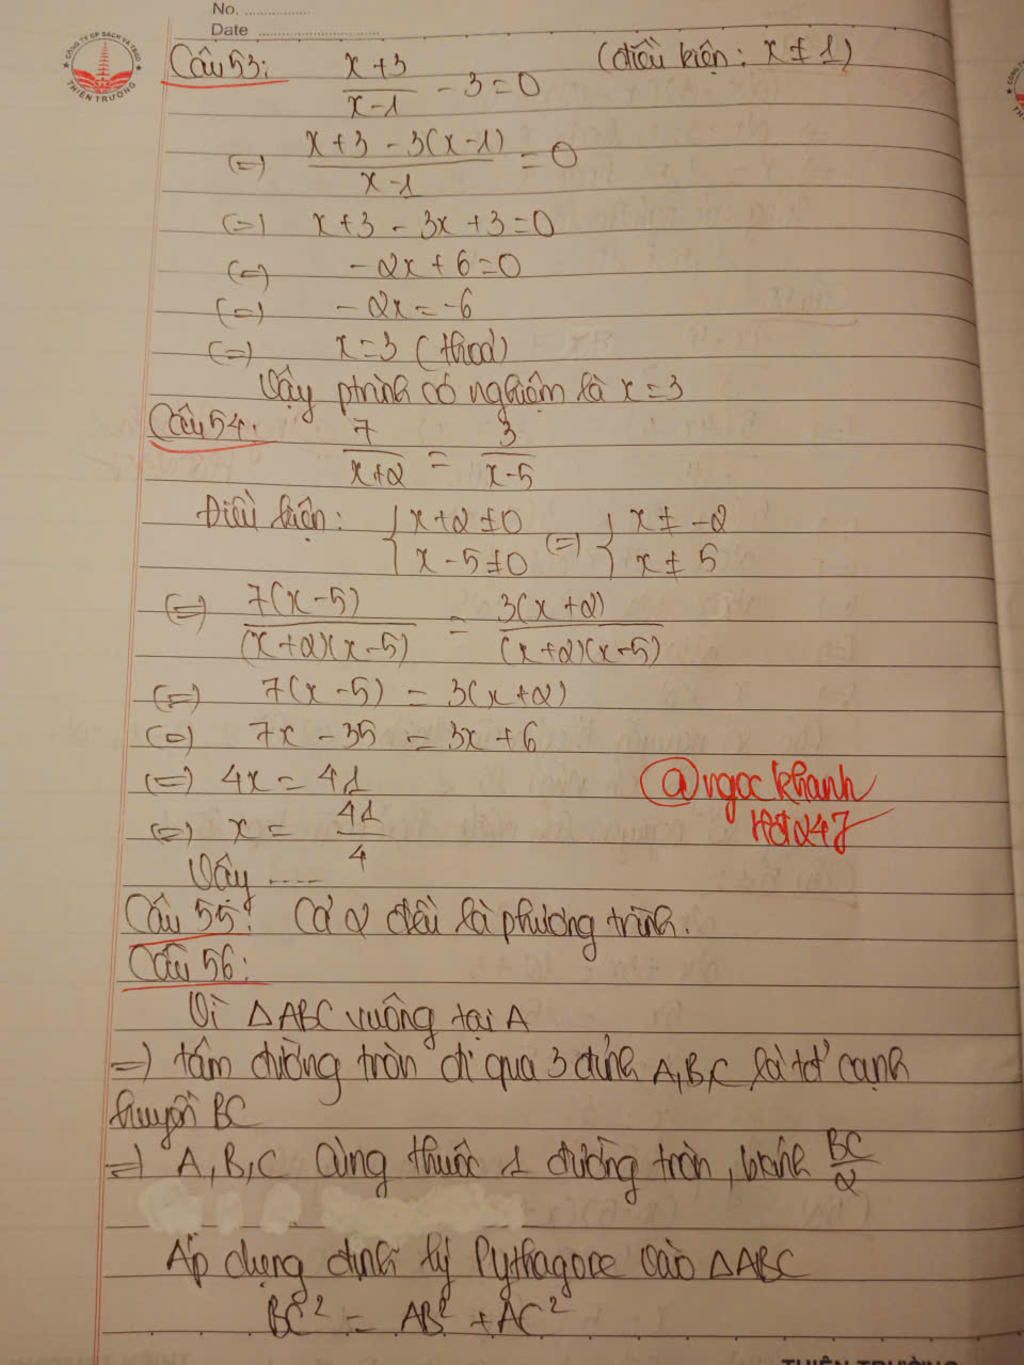 No. ................
Date ................................
CÔNG TY CP SÁCH VÀ TBGD
THIÊN TRƯỜNG
Câu 53: x+3/x-1 - 3 = 0 (điều kiện: x ≠ 1)
(=) x+3 - 3(x-1)/x-1 = 0
(=) x+3 - 3x + 3 = 0
(=) -2x + 6 = 0
(=) -2x = -6
(=) x = 3 (thoả)
Vậy ptrình có nghiệm là x = 3
Câu 54: 7/x+2 = 3/x-5
Điều kiện: { x+2 ≠ 0 (=) { x ≠ -2
x - 5 ≠ 0 x ≠ 5
(=) 7(x-5)/(x+2)(x-5) = 3(x+2)/(x+2)(x-5)
(=) 7(x-5) = 3(x+2)
(=) 7x - 35 = 3x + 6
(=) 4x = 41
@ngockhanh
(=) x = 41/4
Hđ247
Vậy ....
Câu 55: Cả 2 đều là phương trình.
Câu 56:
Vì △ABC vuông tại A
=) tâm đường tròn đi qua 3 đỉnh A,B,C là tđ cạnh
huyền BC
=) A,B,C cùng thuộc 1 đường tròn, bkính BC/2
Áp dụng định lý Pythagore vào △ABC
BC² = AB² + AC²
THIÊN TRƯỜNG